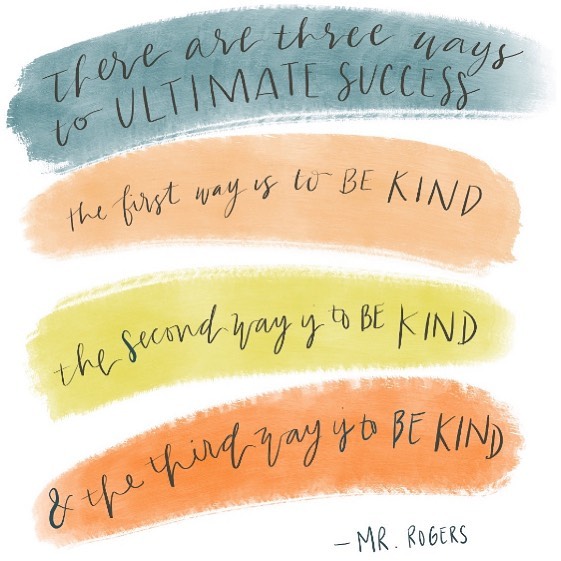 there are three ways
to ULTIMATE SUCCESS
the first way is to BE KIND
the second way is to BE KIND
& the third way is to BE KIND
- MR. ROGERS